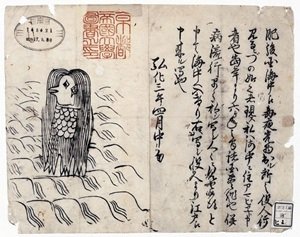 肥後国海中え毎夜光物出ル所之役人行
見るニづの如く者現ス私ハ海中ニ住アマビヱト申
者也当年より六ヶ年之間諸国豊作也併
病流行早々私ヲ写シ人々ニ見セ候得と
申て海中へ入けり右ハ写シ役人より江戸え
申来ル写也
弘化三年四月中旬
京都
帝國大學
圖書之印